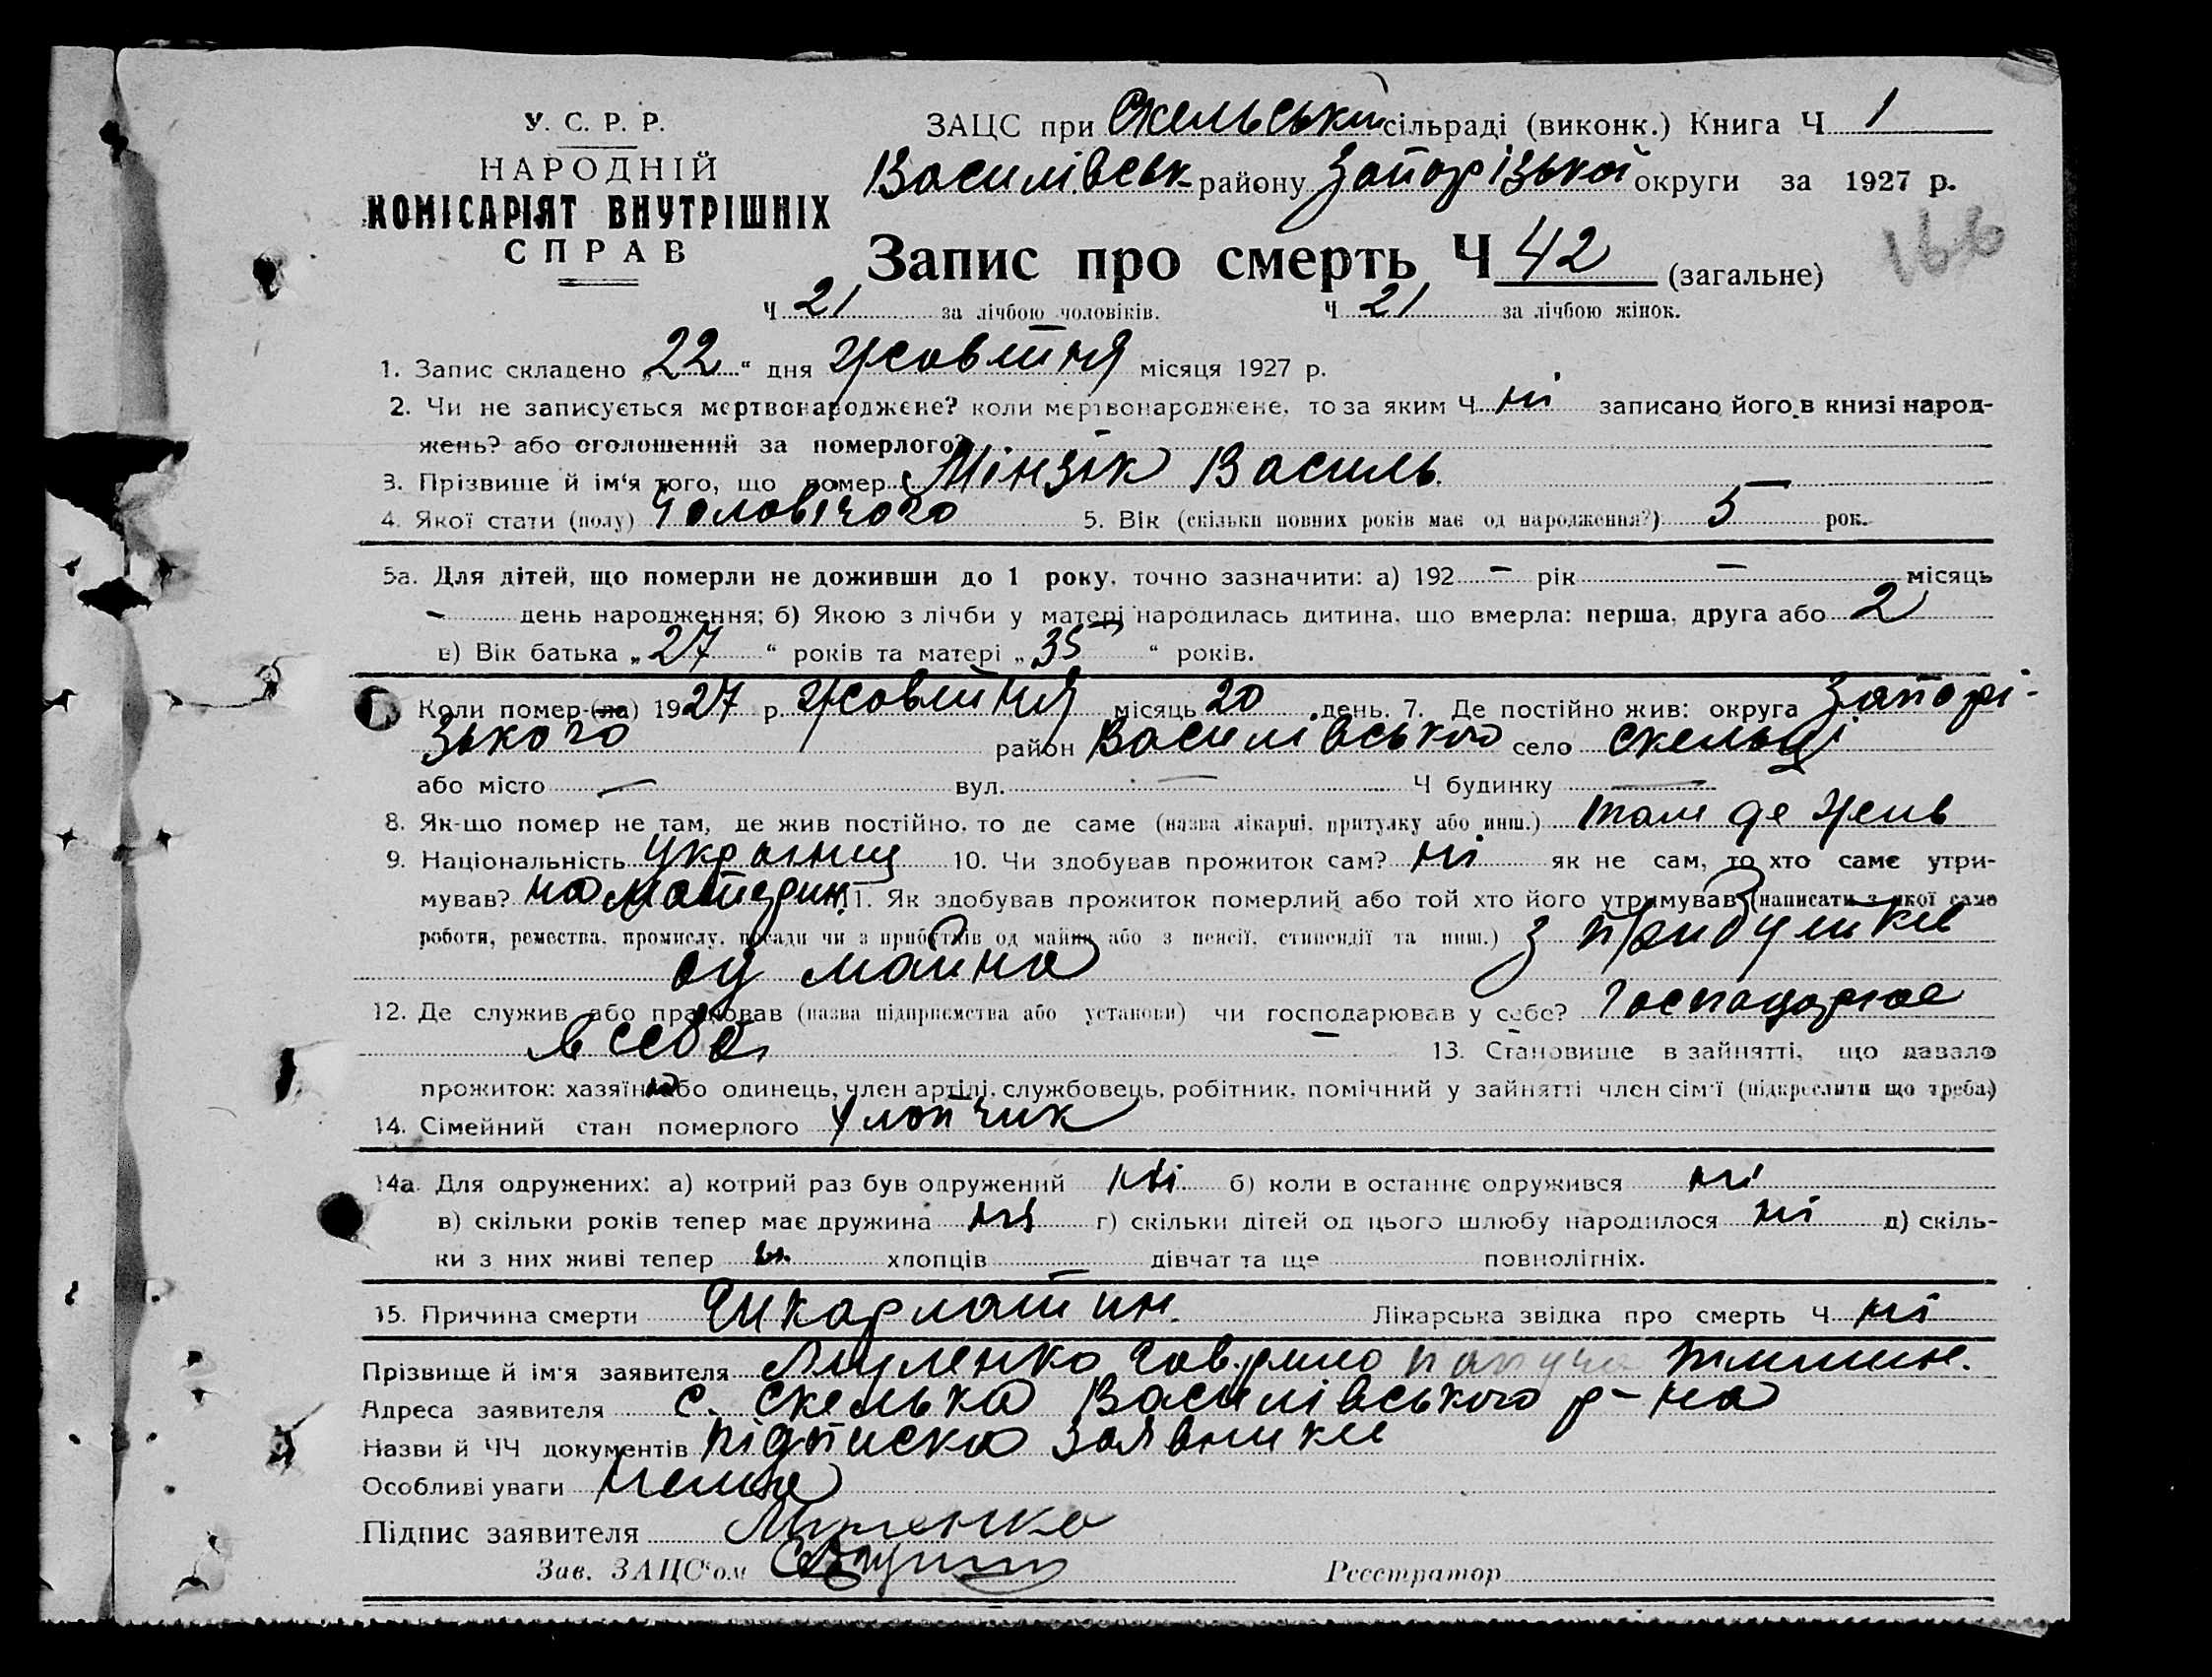 У. С. Р. Р.
НАРОДНІЙ
КОМІСАРІЯТ ВНУТРІШНІХ
СПРАВ
ЗАЦС при Скельській сільраді (виконк.) Книга Ч 1
Василівськ району Запорізької округи за 1927 р.
166
Запис про смерть Ч 42 (загальне)
Ч 21 за лічбою чоловіків. Ч 21 за лічбою жінок.
1. Запис складено „22“ дня жовтня місяця 1927 р.
2. Чи не записується мертвонароджене? коли мертвонароджене, то за яким Ч ні записано його в книзі народ-
жень? або оголошений за померлого? -
3. Прізвище й ім'я того, що помер Мінзік Василь.
4. Якої стати (полу) Чоловічого 5. Вік (скільки повних років має од народження?) 5 рок.
5а. Для дітей, що померли не доживши до 1 року, точно зазначити: а) 192 - рік - місяць
- день народження; б) Якою з лічби у матері народилась дитина, що вмерла: перша, друга або 2
в) Вік батька „27“ років та матері „35“ років.
Коли помер-(ла) 1927 р. жовтня місяць 20 день. 7. Де постійно жив: округа Запорі-
зького район Василівського село Скельці
або місто — вул. — Ч будинку —
8. Як-що помер не там, де жив постійно, то де саме (назва лікарні, притулку або инш.) там де жив
9. Національність українц 10. Чи здобував прожиток сам? ні як не сам, то хто саме утри-
мував? 11. Як здобував прожиток померлий або той хто його утримував (написати з якої само
роботи, ремества, промислу, посади чи з прибутків од майна або з пенсії, стипендії та инш.) з прибутків
од майна
12. Де служив або працював (назва підприємства або установи) чи господарював у себе? Господарює
в себе - 13. Становище в зайнятті, що давало
прожиток: хазяїн або одинець, член артілі, службовець, робітник, помічний у зайнятті член сім'ї (підкреслити що треба)
14. Сімейний стан померлого хлопчик
14а. Для одружених: а) котрий раз був одружений ні б) коли в останнє одружився ні
в) скільки років тепер має дружина ні г) скільки дітей од цього шлюбу народилося ні д) скіль-
ки з них живі тепер хлопців дівчат та ще повнолітніх.
15. Причина смерти Шкарлатин. Лікарська звідка про смерть Ч ні
Прізвище й ім'я заявителя
Адреса заявителя с. Скелька Василівського р-на
Назви й ЧЧ документів підписка заявники
Особливі уваги немає
Підпис заявителя
Зав. ЗАЦС'ом
Реєстратор